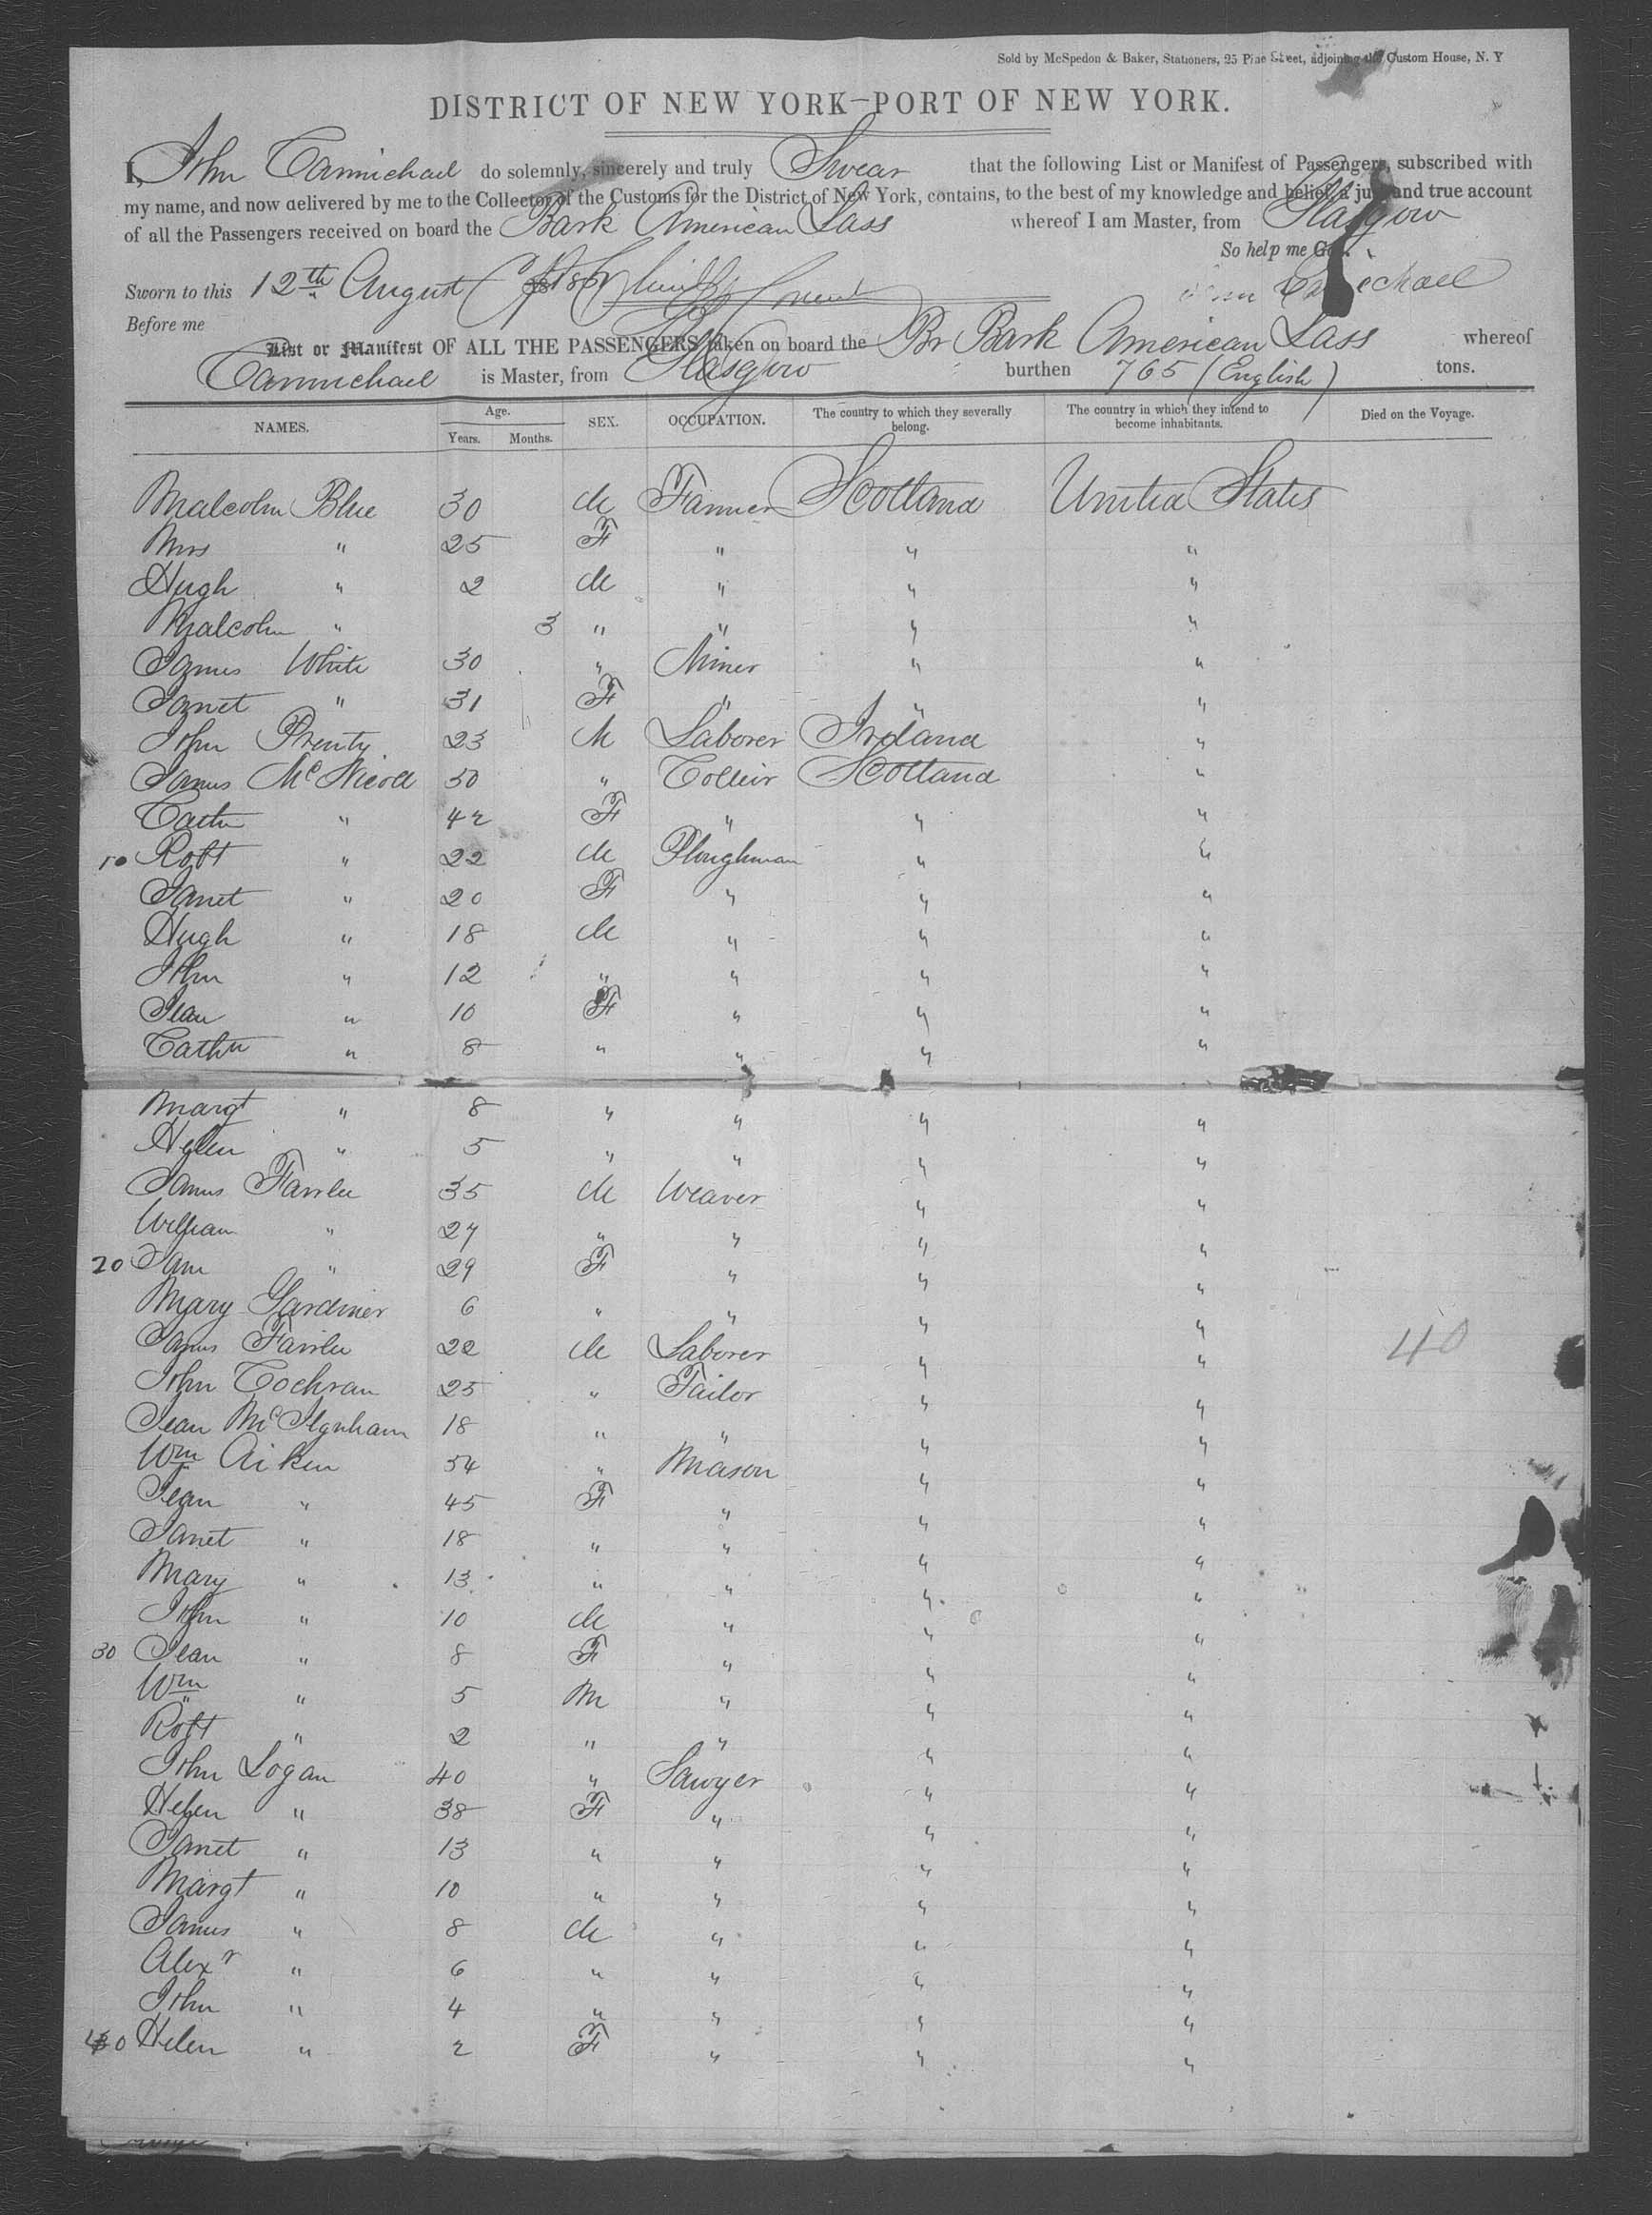 Sold by McSpedon & Baker, Stationers, 25 Pine Street, adjoining the Custom House, N. Y
DISTRICT OF NEW YORK—PORT OF NEW YORK.
I, John Carmichael do solemnly, sincerely and truly Swear that the following List or Manifest of Passengers, subscribed with
my name, and now delivered by me to the Collector of the Customs for the District of New York, contains, to the best of my knowledge and belief, a just and true account
of all the Passengers received on board the Bark American Lass whereof I am Master, from Glasgow
So help me God.
Sworn to this 12th August John Carmichael
Before me
List or Manifest OF ALL THE PASSENGERS taken on board the Br Bark American Lass whereof
Carmichael is Master, from Glasgow burthen 765 (English) tons.
NAMES. Age. Years. Months. SEX. OCCUPATION. The country to which they severally belong. The country in which they intend to become inhabitants. Died on the Voyage.
Malcolm Blue 30 M Farmer Scotland United States
Mrs " 25 F " " "
Hugh " 2 M " " "
Malcolm " 3 " " " "
James White 30 " Miner " "
Janet " 31 F " " "
John Prenty 23 M Laborer Ireland "
James McNicoll 50 " Collier Scotland "
Cathn " 42 F " " "
10 Robt " 22 M Ploughman " "
Janet " 20 F " " "
Hugh " 18 M " " "
John " 12 " " " "
Jean " 10 F " " "
Cathn " 8 " " " "
Margt " 8 " " " "
Helen " 5 " " " "
James Fairlee 35 M Weaver " "
William " 27 " " " "
20 Jane " 29 F " " "
Mary Gardiner 6 " " " "
James Fairlee 22 M Laborer " "
John Cochran 25 " Tailor " "
Jean 18 " " " "
Wm Aiken 54 " Mason " "
Jean " 45 F " " "
Janet " 18 " " " "
Mary " 13 " " " "
John " 10 M " " "
30 Jean " 8 F " " "
Wm " 5 M " " "
Robt " 2 " " " "
John Logan 40 " Sawyer " "
Helen " 38 F " " "
Janet " 13 " " " "
Margt " 10 " " " "
James " 8 M " " "
Alexr " 6 " " " "
John " 4 " " " "
40 Helen " 2 F " " "
40